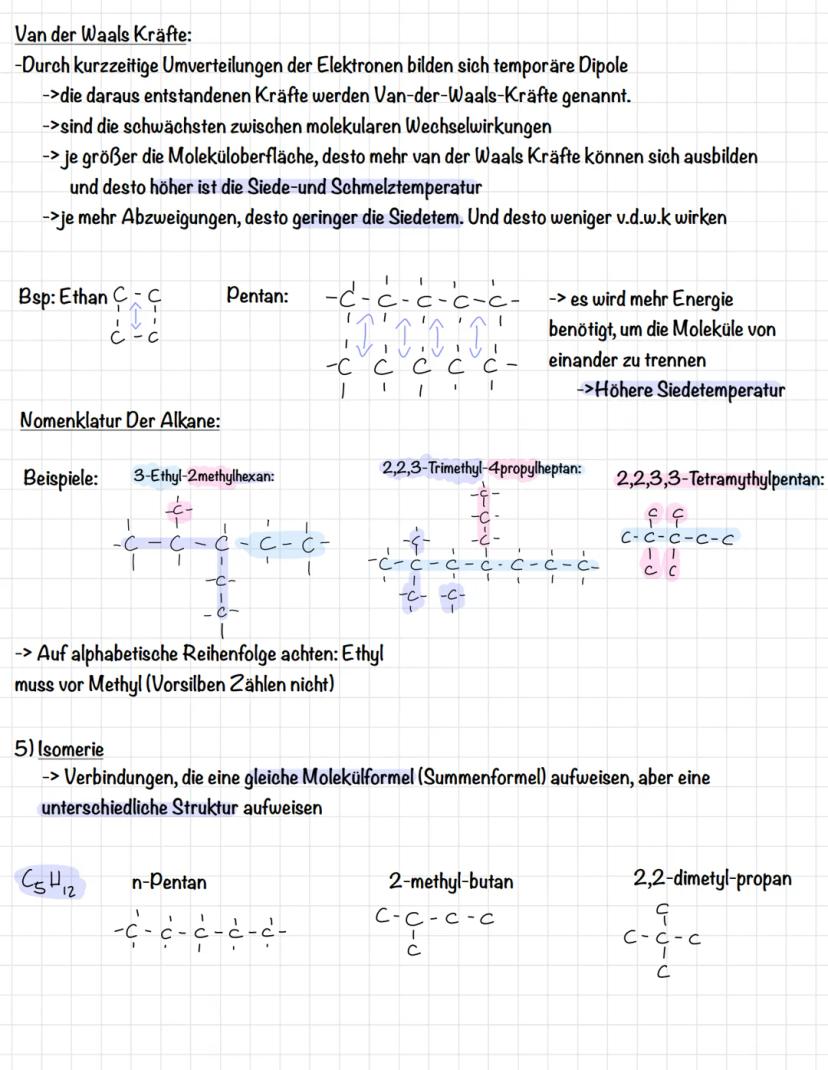 Van der Waals Kräfte:
-Durch kurzzeitige Umverteilungen der Elektronen bilden sich temporäre Dipole
->die daraus entstandenen Kräfte werden Van-der-Waals-Kräfte genannt.
->sind die schwächsten zwischen molekularen Wechselwirkungen
-> je größer die Moleküloberfläche, desto mehr van der Waals Kräfte können sich ausbilden
und desto höher ist die Siede-und Schmelztemperatur
->je mehr Abzweigungen, desto geringer die Siedetem. Und desto weniger v.d.w.k wirken
Bsp: Ethan C - C
C - C
Pentan: -C-C-C-C-C-
-C C C C C-
-> es wird mehr Energie
benötigt, um die Moleküle von
einander zu trennen
->Höhere Siedetemperatur
Nomenklatur Der Alkane:
Beispiele:
3-Ethyl-2methylhexan:
-C-
-C-C-C-C-C-
-C-
-C-
2,2,3-Trimethyl-4propylheptan:
-C-
-C-
-C- -C-
-C-C-C-C-C-C-C-
-C- -C-
2,2,3,3-Tetramythylpentan:
C C
C-C-C-C-C
C C
-> Auf alphabetische Reihenfolge achten: Ethyl
muss vor Methyl (Vorsilben Zählen nicht)
5) Isomerie
-> Verbindungen, die eine gleiche Molekülformel (Summenformel) aufweisen, aber eine
unterschiedliche Struktur aufweisen
C5H12
n-Pentan
-C-C-C-C-C-
2-methyl-butan
C-C-C-C
C
2,2-dimetyl-propan
C
C-C-C
C